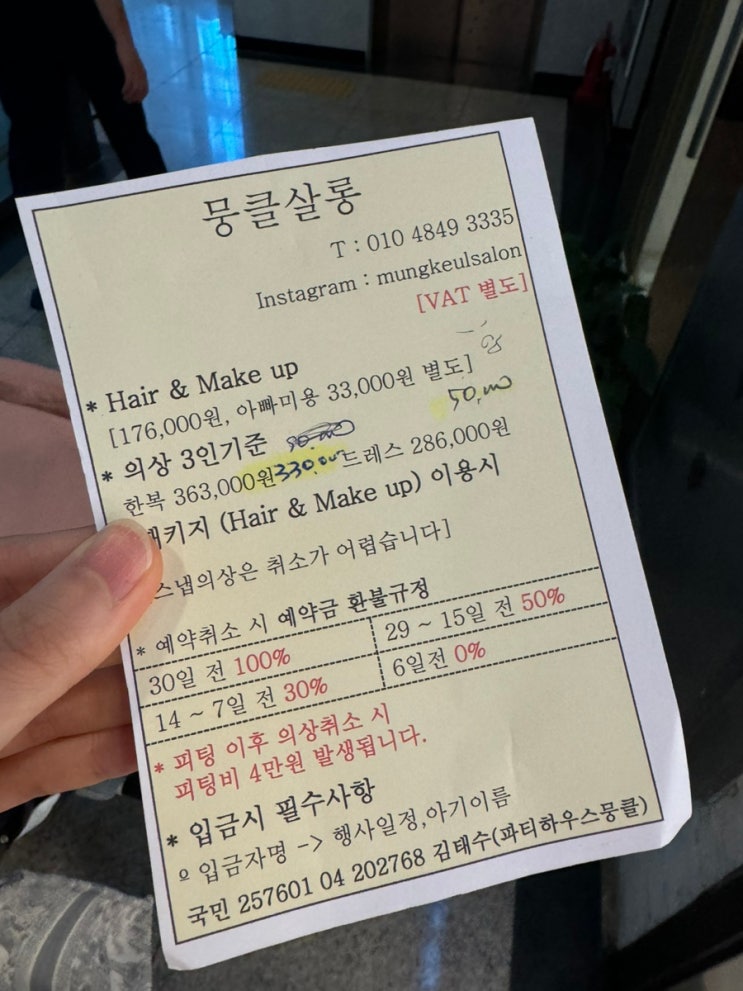 뭉클살롱
T : 010 4849 3335
Instagram : mungkeulsalon
[VAT 별도]
* Hair & Make up
[176,000원, 아빠미용 33,000원 별도]
50,000
* 의상 3인기준
한복 363,000원 330,000 드레스 286,000원
키지 (Hair & Make up) 이용시
스냅의상은 취소가 어렵습니다]
* 예약취소 시 예약금 환불규정
30일 전 100%
29 ~ 15일 전 50%
14 ~ 7일 전 30%
6일전 0%
* 피팅 이후 의상취소 시
피팅비 4만원 발생됩니다.
* 입금시 필수사항
으 입금자명 -> 행사일정,아기이름
국민 257601 04 202768 김태수(파티하우스뭉클)